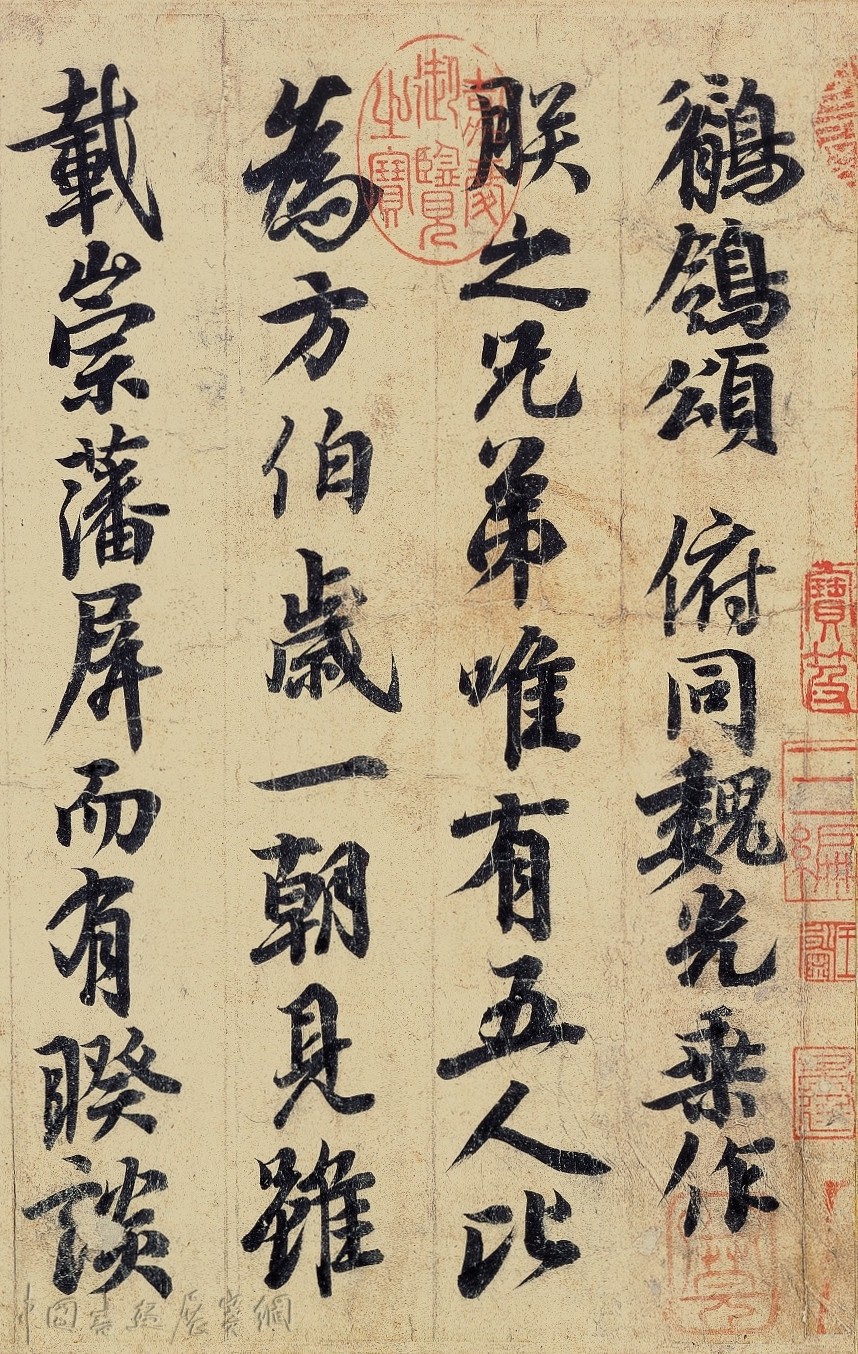 鶺鴒頌 俯同魏光乘作
朕之兄弟唯有五人比
為方伯歲一朝見雖
載崇藩屏而有睽談
嘉慶御覽之寶
中國書法展賓網